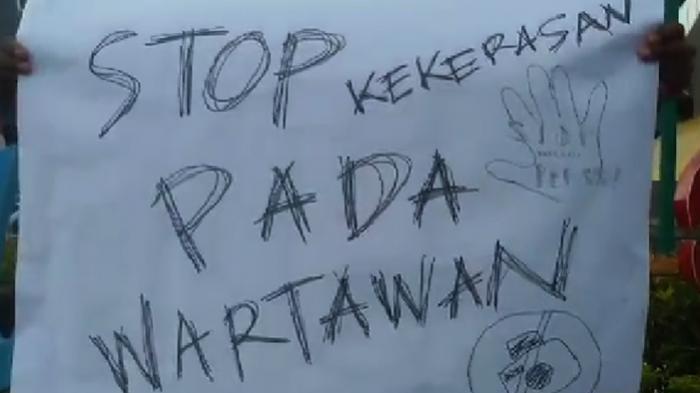 STOP KEKERASAN
PADA
WARTAWAN
STOP